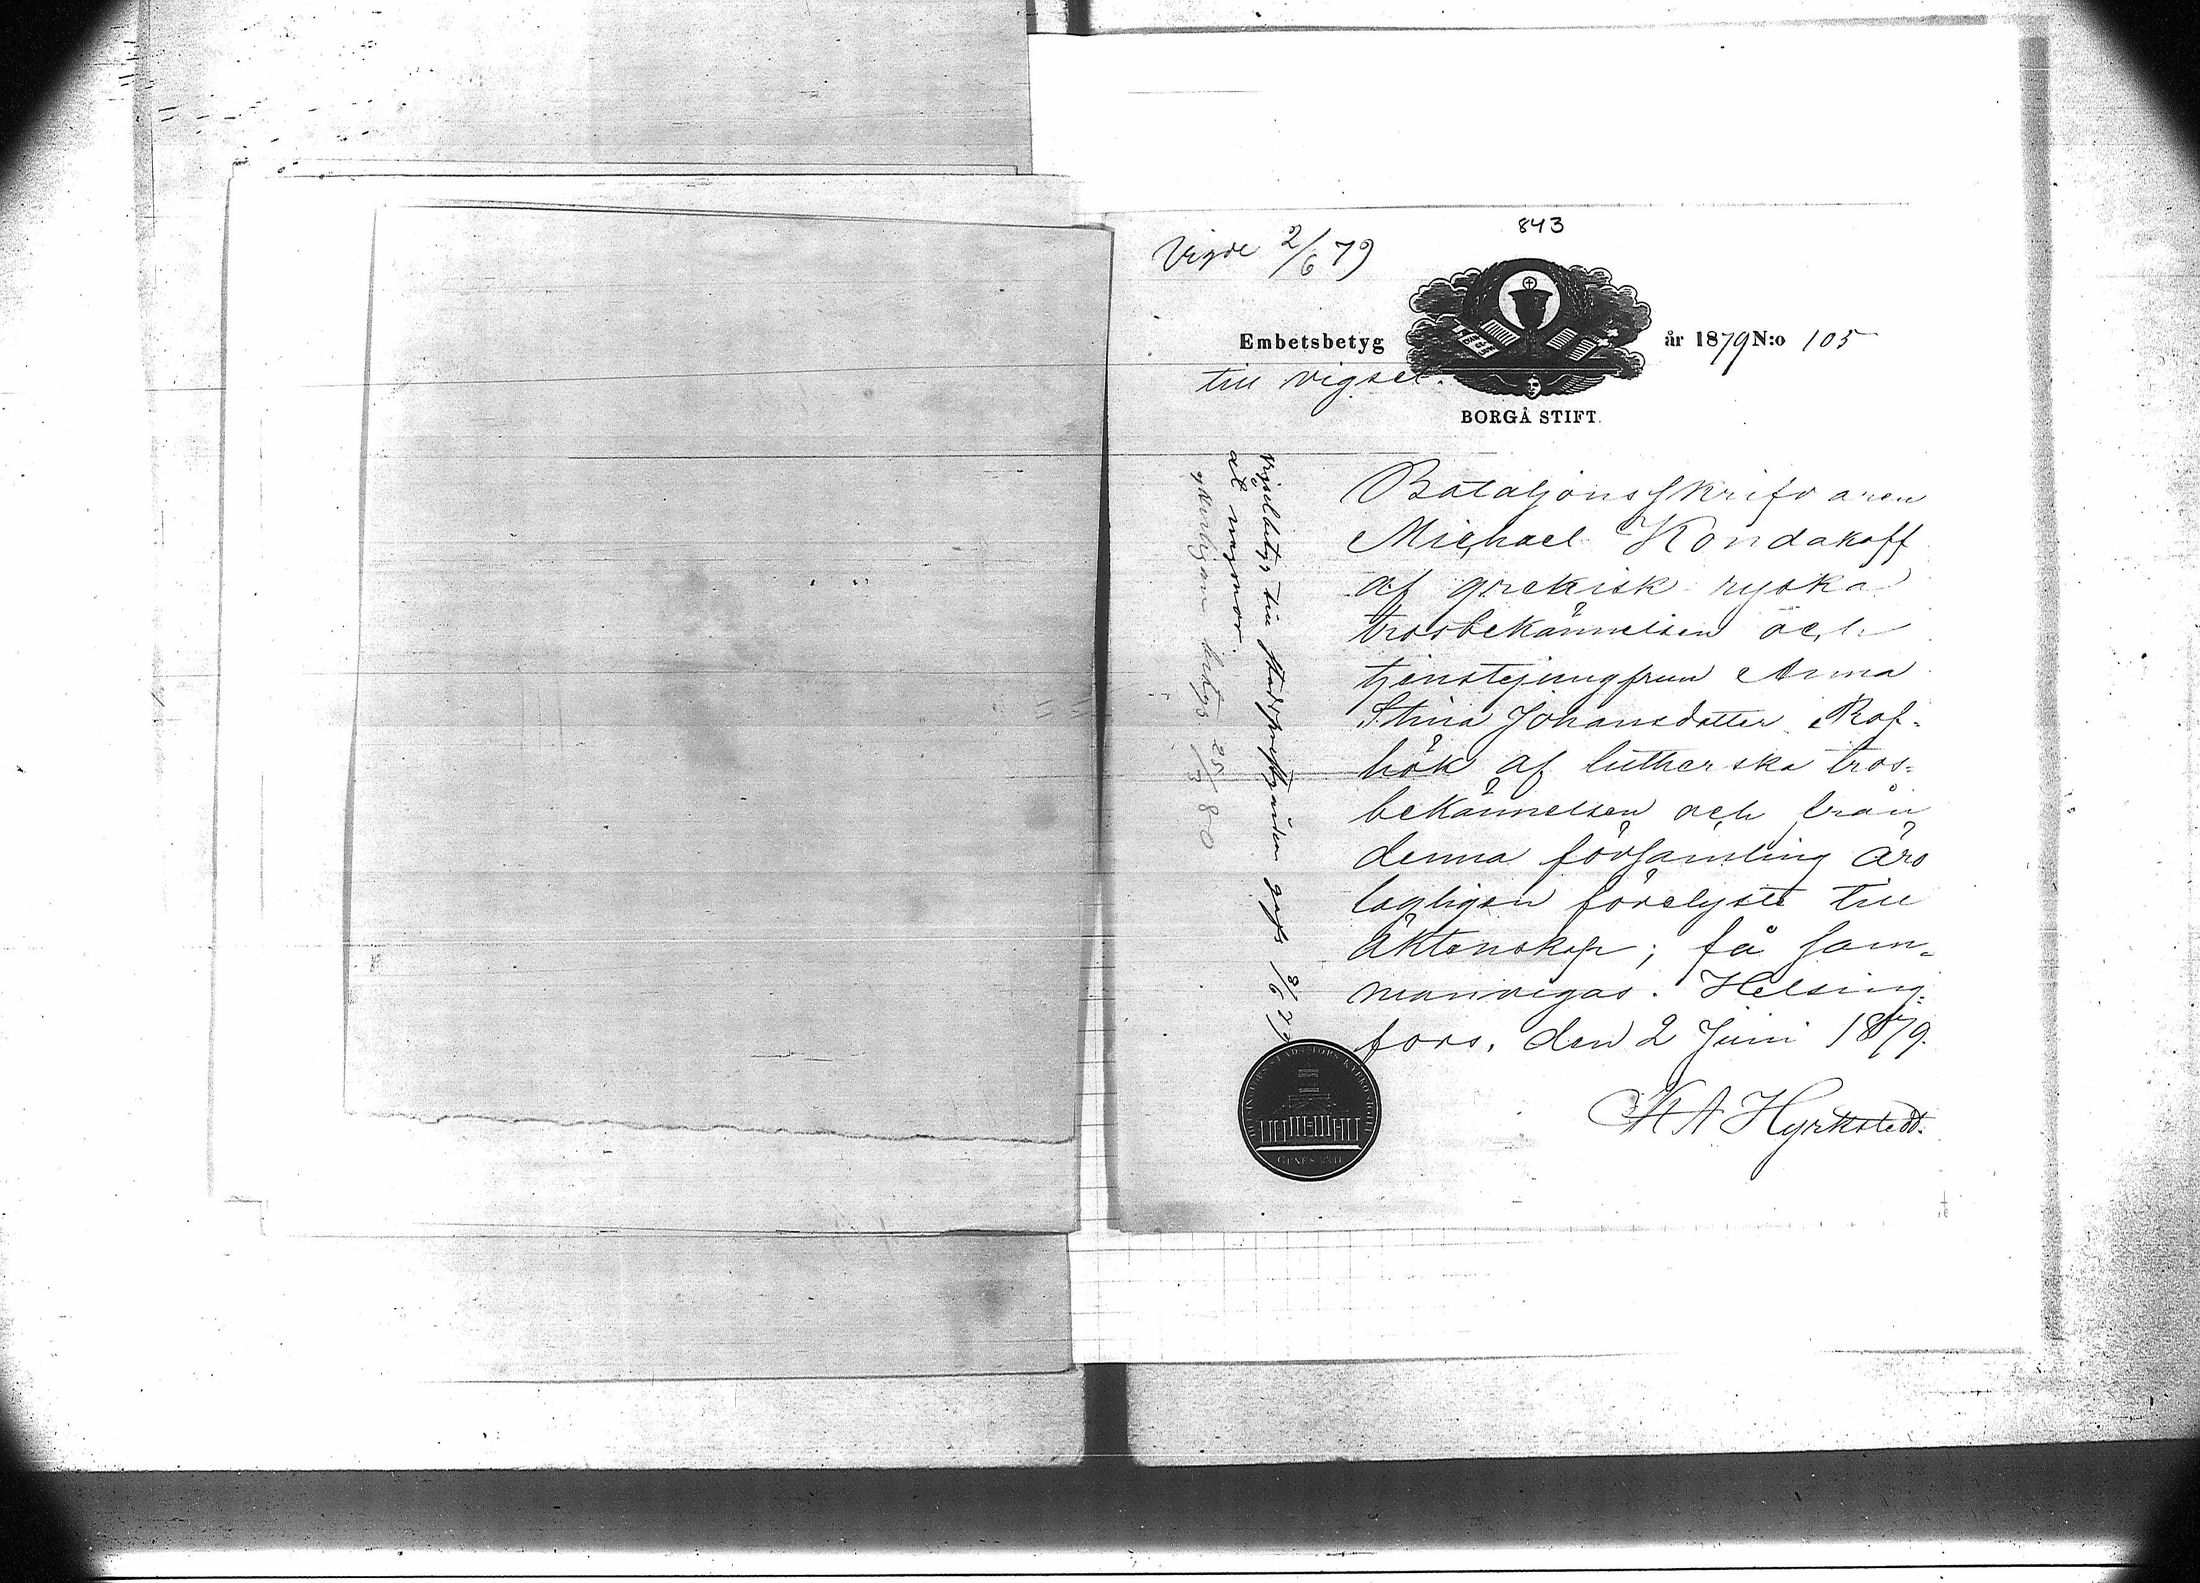 843
Vigde 2/6 79
Embetsbetyg år 1879 N:o 105
till vigsel.
BORGÅ STIFT.
Bataljonsskrifvaren
Michael Kondakoff
af grekisk ryska
trosbekännelsen och
tjenstejungfrun Anna
Stina Johansdotter Rof-
hök af lutherska tros-
bekännelsen och från
denna församling äro
lagligen förelyste till
äktenskap; få sam-
manvigas. Helsing-
fors, den 2 Juni 1879.
K A Hyrkstedt.
Vigselbetyg till
3/6 79
betyg 25/3 80